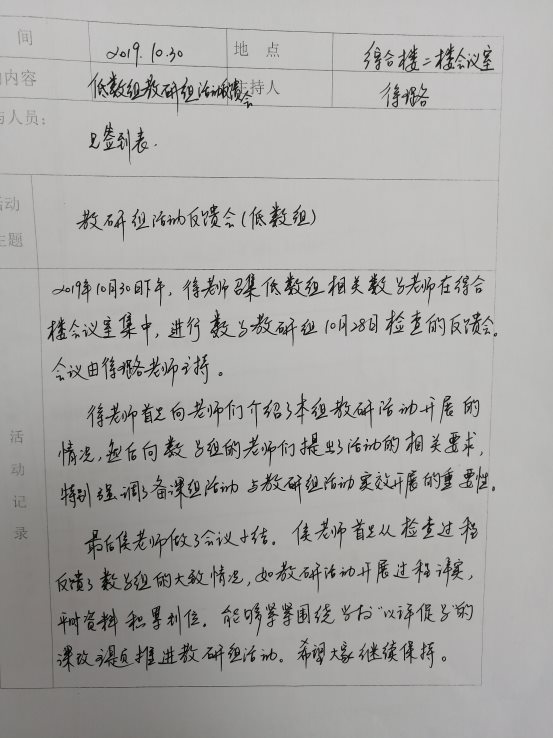 间 2019.10.30 地 点 综合楼二楼会议室
内容 低数组教研组活动反馈会 主持人 徐璐
与人员：
见签到表.
活动
主题
教研组活动反馈会(低数组)
2019年10月30日下午，徐老师召集低数组相关数学老师在综合
楼会议室集中，进行数学教研组10月28日检查的反馈会。
会议由徐璐老师主持。
徐老师首先向老师们介绍了本组教研活动开展的
情况，然后向数学组的老师们提出了活动的相关要求，
特别强调了备课组活动与教研组活动实效开展的重要性。
活
动
记
录
最后侯老师做了会议小结。侯老师首先从检查过程
反馈了数学组的大致情况，如教研活动开展过程详实，
平时资料积累到位。能够紧紧围绕学校“以评促学”的
课改课题推进教研组活动。希望大家继续保持。